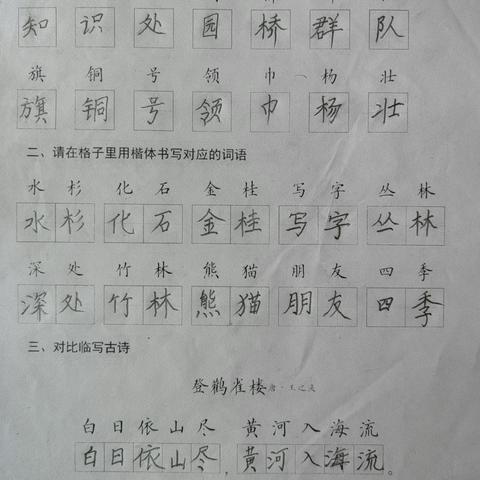 知 识 处 园 桥 群 队
旗 铜 号 领 巾 杨 壮
旗 铜 号 领 巾 杨 壮
二、请在格子里用楷体书写对应的词语
水 杉 化 石 金 桂 写 字 丛 林
水 杉 化 石 金 桂 写 字 丛 林
深 处 竹 林 熊 猫 朋 友 四 季
深 处 竹 林 熊 猫 朋 友 四 季
三、对比临写古诗
登鹳雀楼 唐·王之涣
白 日 依 山 尽 黄 河 入 海 流
白 日 依 山 尽 , 黄 河 入 海 流 。